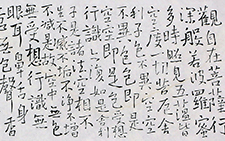 觀自在菩薩行
深般若波羅蜜
多時照見五蘊皆
空度一切苦厄舍
利子色不異空空
不異色色即是
空空即是色受想
行識亦復如是舍利
子是諸法空相不
生不滅不垢不淨不增
不減是故空中無色
無受想行識無
眼耳鼻舌身
意無色聲香